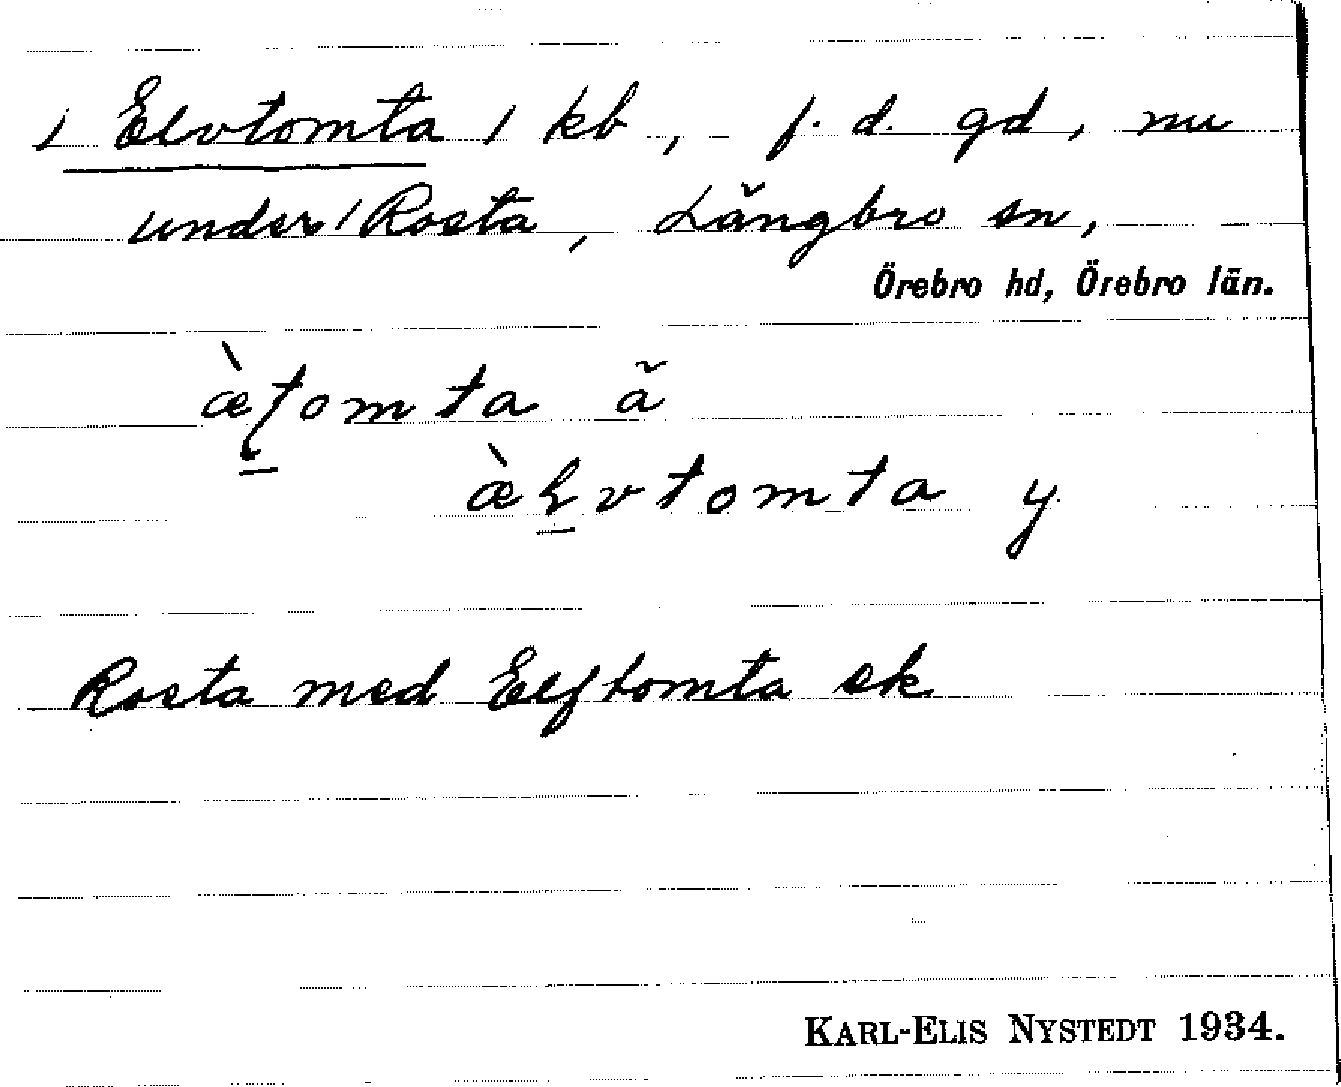 / Elvtomta / kb, f. d. gd, nu
under / Rosta, Längbro sn,
Örebro hd, Örebro län.
tomta ä
vtomta y
Rosta med Elftomta ek
KARL-ELIS NYSTEDT 1934.